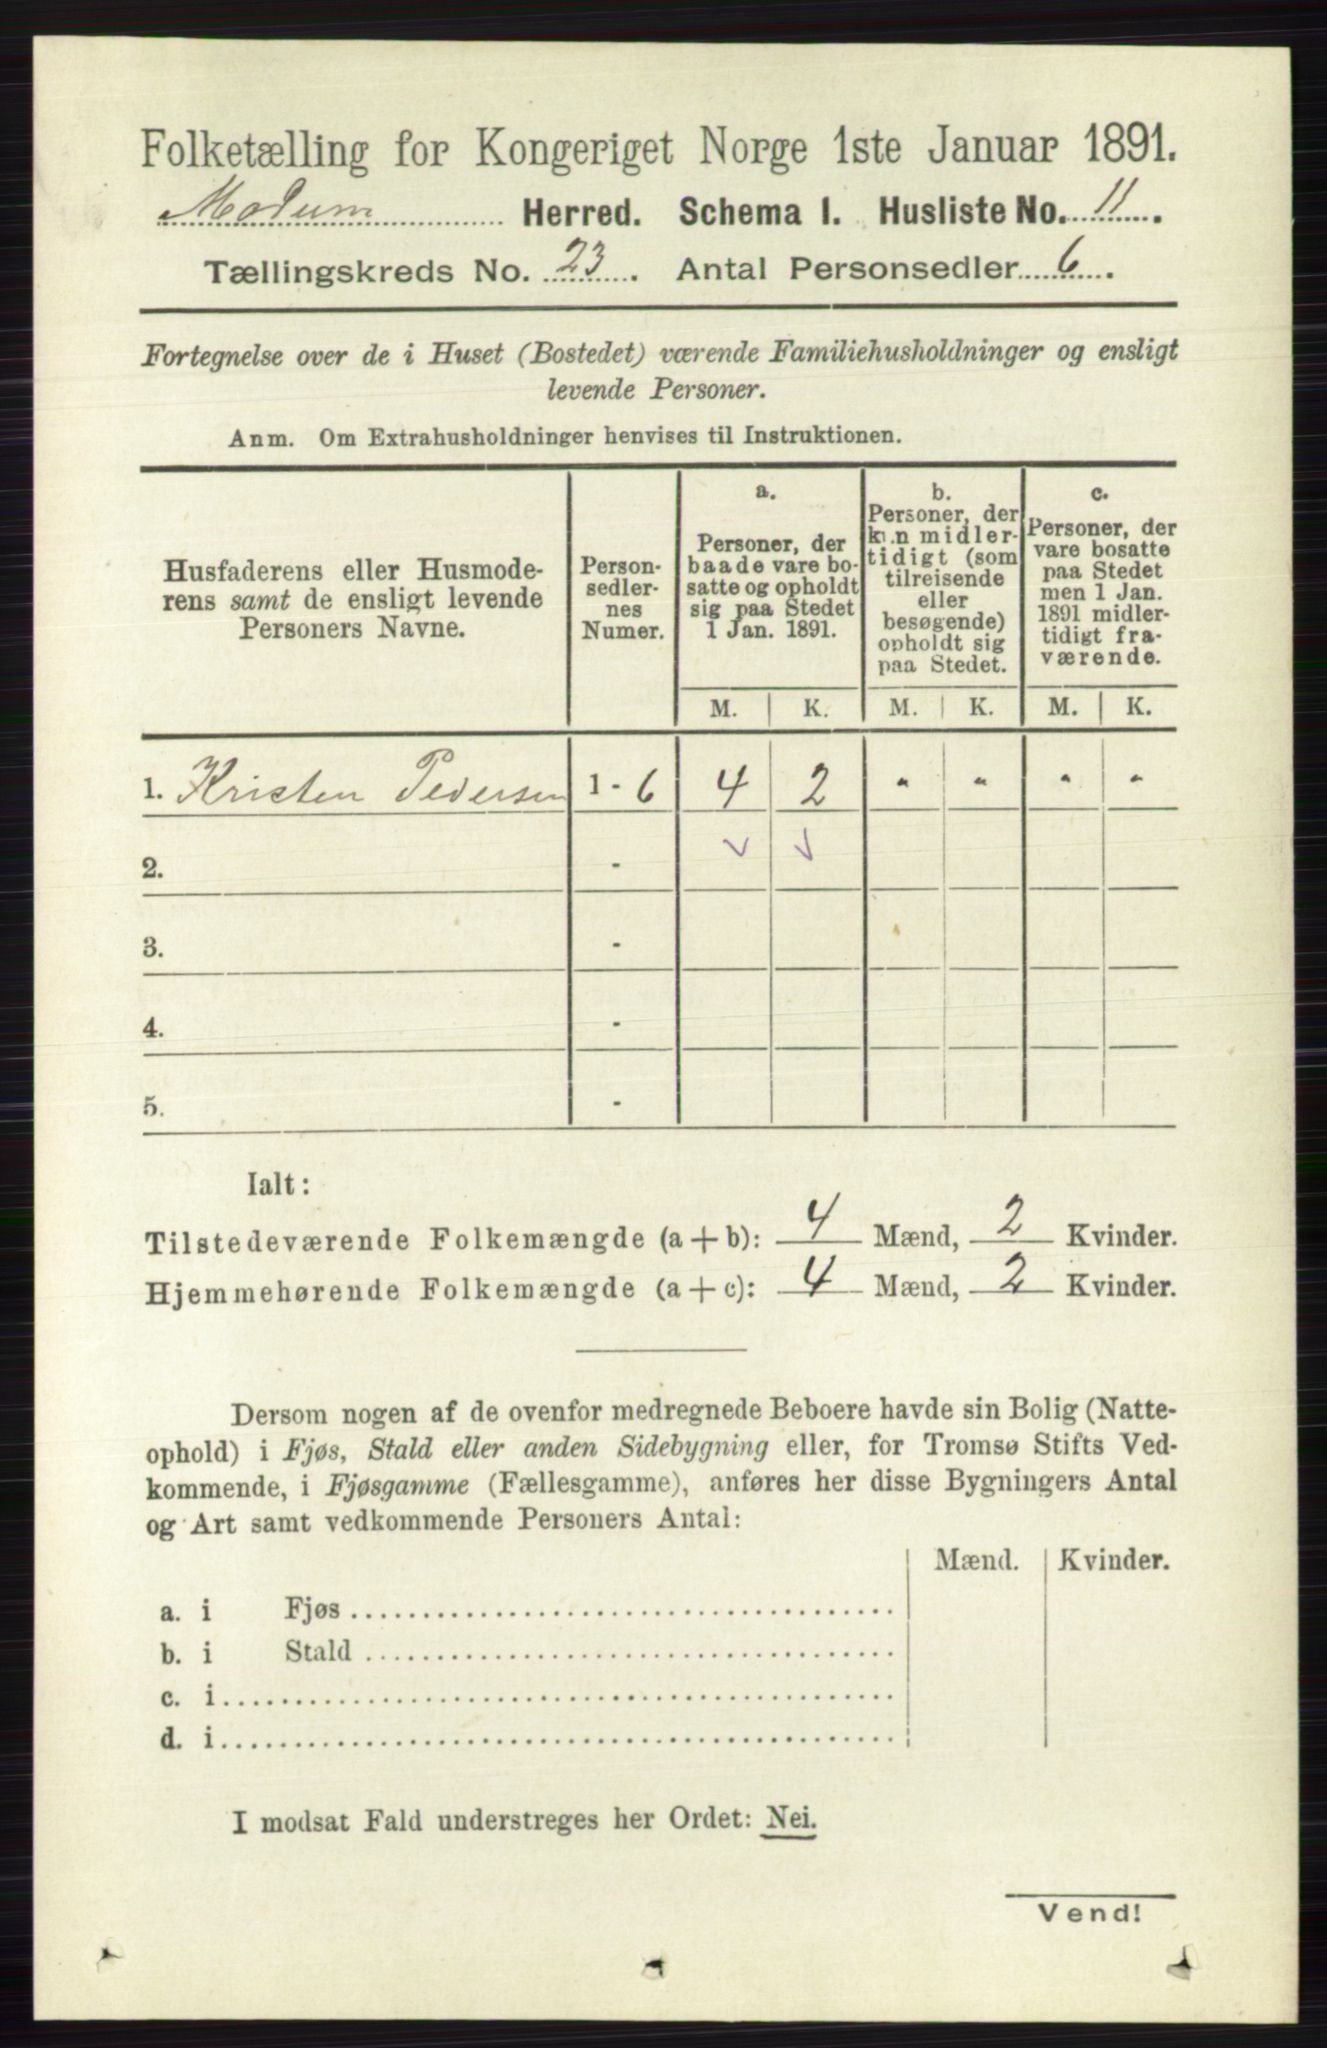 Folketælling for Kongeriget Norge 1ste Januar 1891.
Modum Herred. Schema 1. Husliste No. 11.
Tællingskreds No. 23. Antal Personsedler 6.
Fortegnelse over de i Huset (Bostedet) værende Familiehusholdninger og ensligt
levende Personer.
Anm. Om Extrahusholdninger henvises til Instruktionen.
Husfaderens eller Husmode-
rens samt de ensligt levende
Personers Navne.
Person-
sedler-
nes
Numer.
a.
Personer, der
baade vare bo-
satte og opholdt
sig paa Stedet
1 Jan. 1891.
b.
Personer, der
kun midler-
tidigt (som
tilreisende
eller
besøgende)
opholdt sig
paa Stedet.
c.
Personer, der
vare bosatte
paa Stedet
men 1 Jan.
1891 midler-
tidigt fra-
værende.
M. K. M. K. M. K.
1. Kristen Pedersen 1 - 6 4 2 " " " "
2. -
3. -
4. -
5. -
Ialt:
Tilstedeværende Folkemængde (a + b): 4 Mænd, 2 Kvinder.
Hjemmehørende Folkemængde (a + c): 4 Mænd, 2 Kvinder.
Dersom nogen af de ovenfor medregnede Beboere havde sin Bolig (Natte-
ophold) i Fjøs, Stald eller anden Sidebygning eller, for Tromsø Stifts Ved-
kommende, i Fjøsgamme (Fællesgamme), anføres her disse Bygningers Antal
og Art samt vedkommende Personers Antal:
Mænd. Kvinder.
a. i Fjøs
b. i Stald
c. i
d. i
I modsat Fald understreges her Ordet: Nei.
Vend!